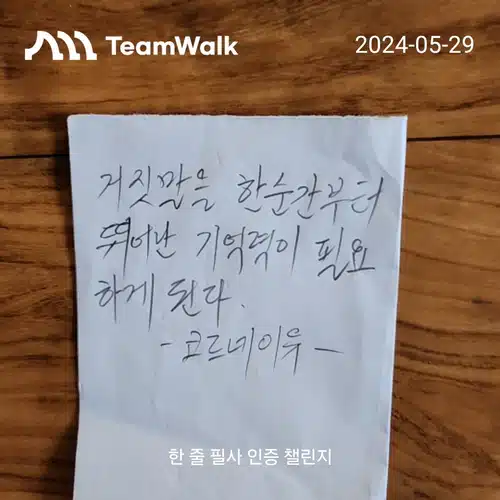 TeamWalk
2024-05-29
거짓말을 한순간부터
뛰어난 기억력이 필요
하게 된다.
- 코르네이유 -
한 줄 필사 인증 챌린지